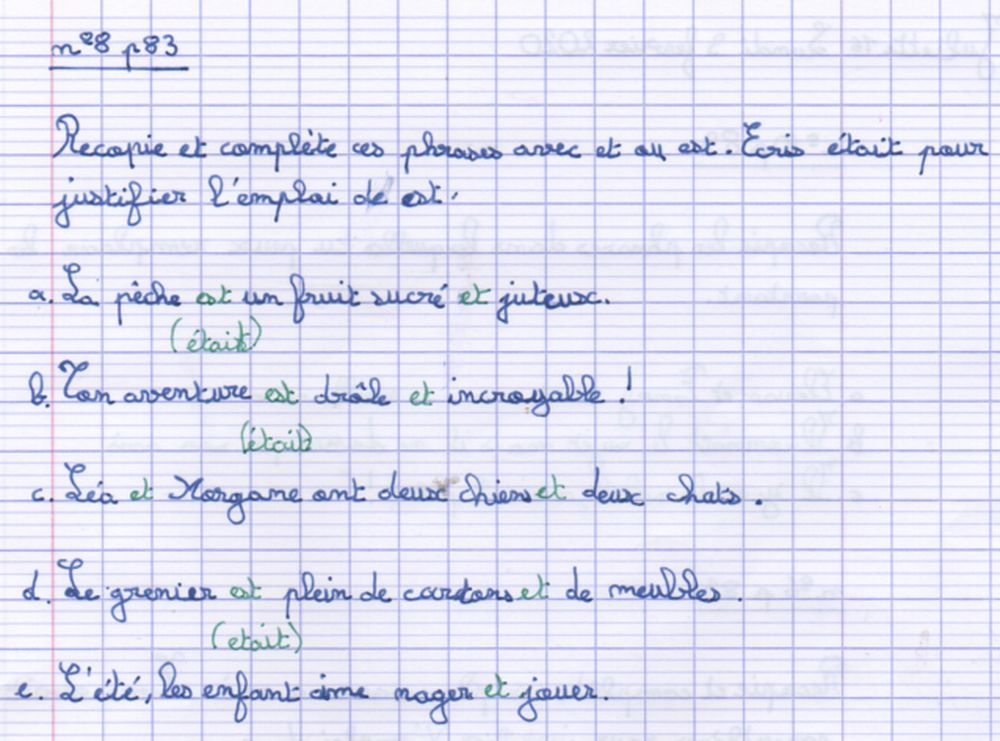 n°8 p83
Recopie et complète ces phrases avec et ou est. Ecris était pour
justifier l'emploi de est.
a. La pêche est un fruit sucré et juteux.
(était)
b. Ton aventure est drôle et incroyable !
(était)
c. Léa et Morgane ont deux chiens et deux chats.
d. Le grenier est plein de cartons et de meubles.
(etait)
e. L'été, les enfant aime nager et jouer.